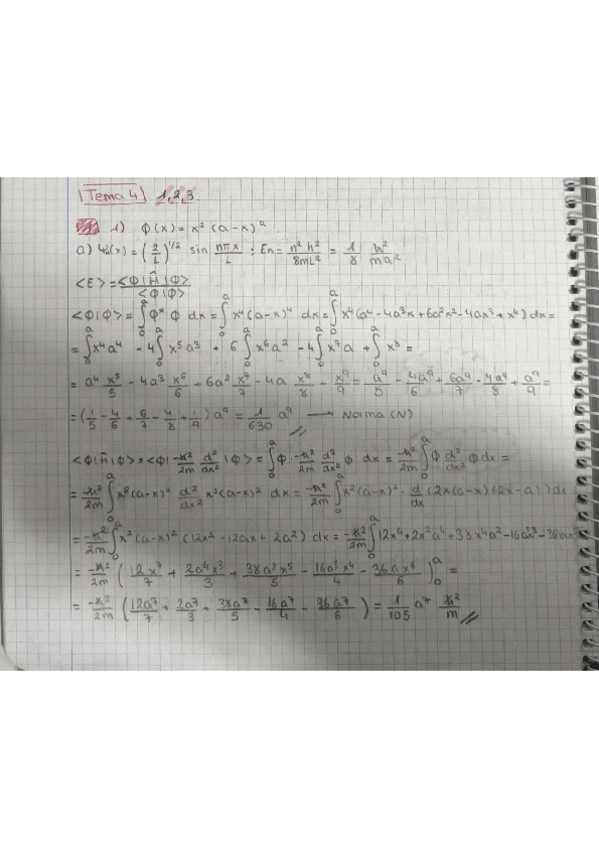 Tema 4 1,2,3.
1) φ(x) = x² (a-x)²
a) Ψn(x) = (2/L)^1/2 sin nπx/L ; En = n²h²/8mL² = 1/8 h²/ma²
<E> = <φ|Ĥ|φ>/<φ|φ>
<φ|φ> = ∫₀ᵃ φ* φ dx = ∫₀ᵃ x⁴(a-x)⁴ dx = ∫₀ᵃ x⁴(a⁴-4a³x+6a²x²-4ax³+x⁴) dx =
= ∫₀ᵃ x⁴a⁴ - 4∫₀ᵃ x⁵a³ + 6∫₀ᵃ x⁶a² - 4∫₀ᵃ x⁷a + ∫₀ᵃ x⁸ =
= a⁴ x⁵/5 - 4a³ x⁶/6 + 6a² x⁷/7 - 4a x⁸/8 + x⁹/9 = a⁹/5 - 4a⁹/6 + 6a⁹/7 - 4a⁹/8 + a⁹/9 =
= (1/5 - 4/6 + 6/7 - 4/8 + 1/9) a⁹ = 1/630 a⁹ → Norma (N)
<φ|Ĥ|φ> = <φ|-ħ²/2m d²/dx²|φ> = ∫₀ᵃ φ · -ħ²/2m d²/dx² φ dx = -ħ²/2m ∫₀ᵃ φ d²/dx² φ dx =
= -ħ²/2m ∫₀ᵃ x²(a-x)² d²/dx² x²(a-x)² dx = -ħ²/2m ∫₀ᵃ x²(a-x)² · d/dx (2x(a-x)(2x-a)) dx
= -ħ²/2m ∫₀ᵃ x²(a-x)² (12x²-12ax+2a²) dx = -ħ²/2m ∫₀ᵃ 12x⁶+2x²a⁴+38x⁴a²-16a³x³-36ax⁵
= -ħ²/2m (12x⁷/7 + 2a⁴x³/3 + 38a²x⁵/5 - 16a³x⁴/4 - 36ax⁶/6)₀ᵃ =
= -ħ²/2m (12a⁷/7 + 2a⁷/3 + 38a⁷/5 - 16a⁷/4 - 36a⁷/6) = 1/105 a⁷ ħ²/m